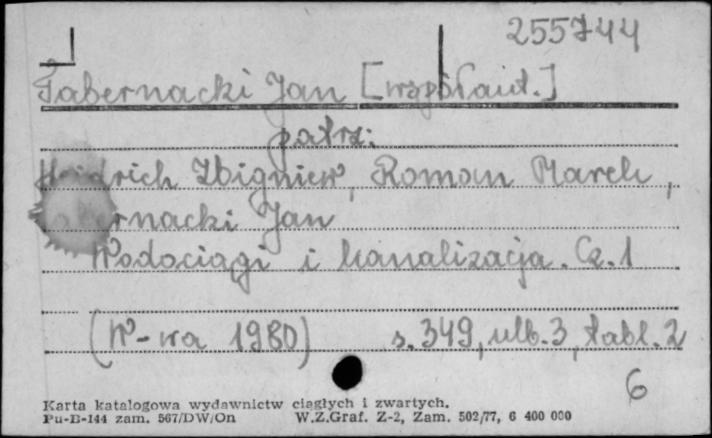 255744
Tabernacki Jan [współaut.]
patrz:
Heidrich Zbigniew, Roman Marek,
Tabernacki Jan
Wodociągi i kanalizacja. Cz. 1
(W-wa 1980) s. 349, ulb. 3, tabl. 2
6
Karta katalogowa wydawnictw ciągłych i zwartych.
Pu-B-144 zam. 567/DW/On W.Z.Graf. Z-2, Zam. 502/77, 6 400 000